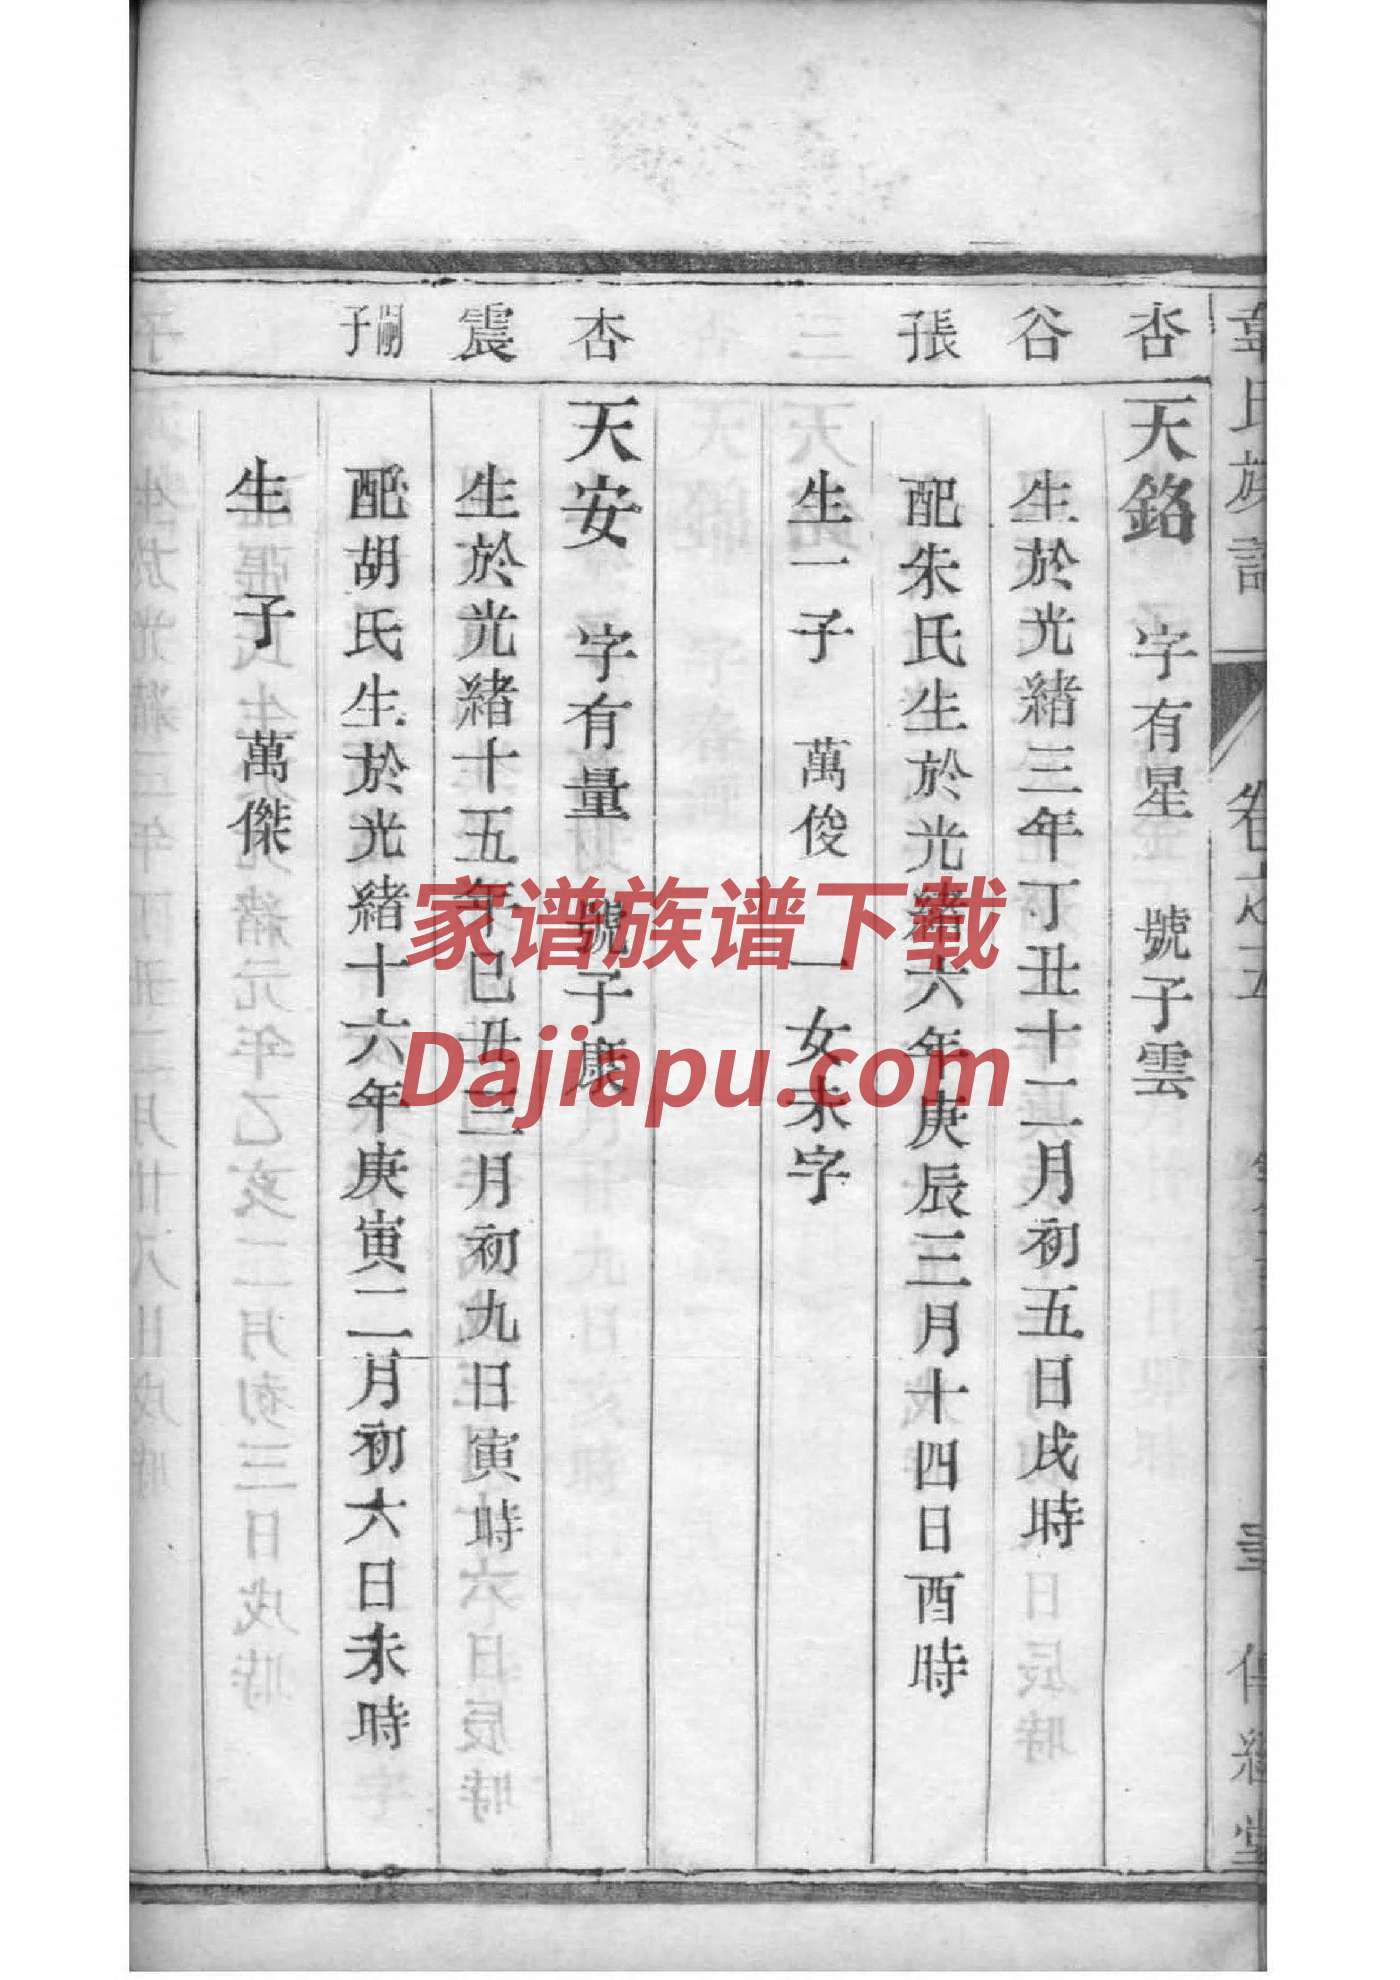 章氏族譜
杏 天銘 字有星 號子雲
谷 生於光緒三年丁丑十二月初五日戌時
張 配朱氏生於光緒六年庚辰三月十四日酉時
生一子 萬俊 一女未字
杏 天安 字有量 號子康
震 生於光緒十五年己丑三月初九日寅時
嗣子 配胡氏生於光緒十六年庚寅二月初六日未時
生子 萬傑
家谱族谱下载
Dajiapu.com